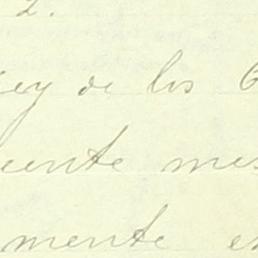 2.
ey de los
ente mes
mente e